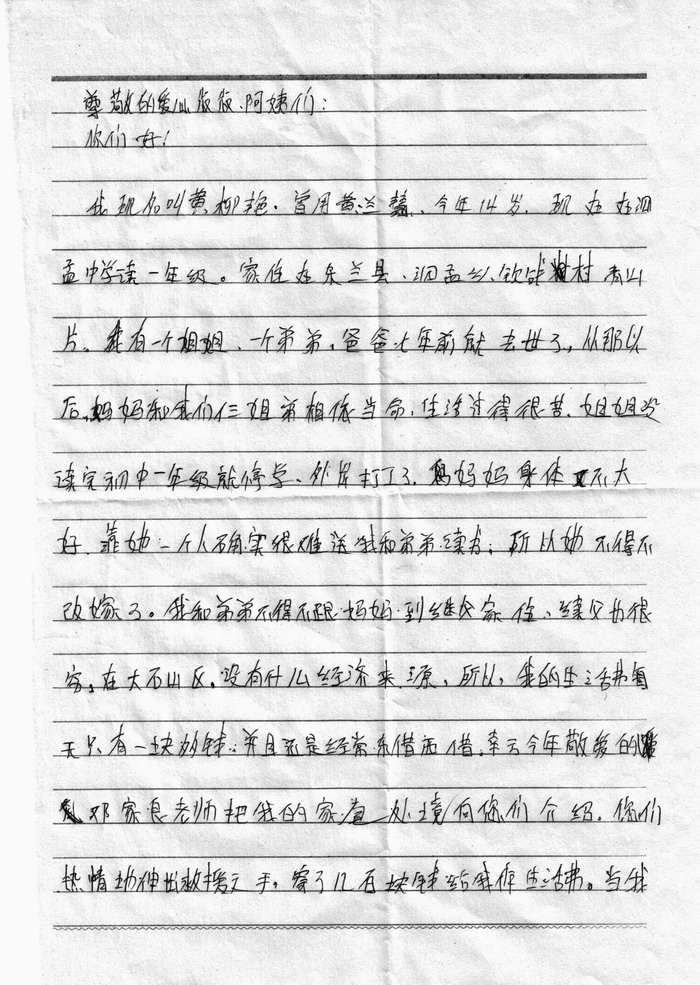 尊敬的爱心叔叔、阿姨们:
你们好!
我现名叫黄柳艳、曾用黄兰、今年14岁、现在在泗
孟中学读一年级。家住在东兰县、泗孟乡、钦能村肯山
片。我有一个姐姐、一个弟弟,爸爸七年前就去世了,从那以
后,妈妈和我们仨姐弟相依当命,生活过得很苦,姐姐没
读完初中一年级就停学、外出打工了,妈妈身体不大
好、靠她一个人确实很难送我和弟弟读书;所以她不得不
改嫁了。我和弟弟不得不跟妈妈到继父家住、继父也很
穷,在大石山区,没有什么经济来源,所以,我的生活费每
天只有一块多钱;并且还是经常东借西借,幸亏今年敬爱的
邓家良老师把我的家处境向你们介绍,你们
热情地伸出救援之手,寄了几百块钱给我作生活费。当我